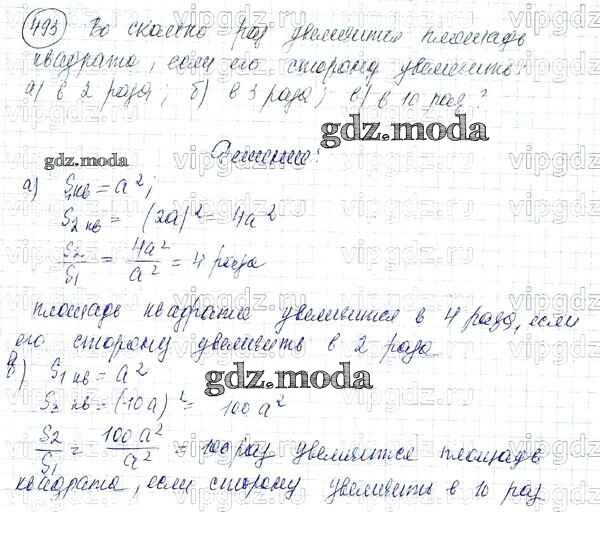 493 Во сколько раз увеличится площадь
квадрата, если его сторону увеличить
а) в 2 раза; б) в 3 раза; в) в 10 раз?
gdz.moda
Решение:
gdz.moda
а) S₁кв = a²;
S₂ кв = (2a)² = 4a²
S2/S1 = 4a²/a² = 4 раза
площадь квадрата увеличится в 4 раза, если
его сторону увеличить в 2 раза
в) S₁ кв = a²
gdz.moda
S₂ кв = (10a)² = 100a²
S2/S1 = 100a²/a² = 100 раз увеличится площадь
квадрата, если сторону увеличить в 10 раз